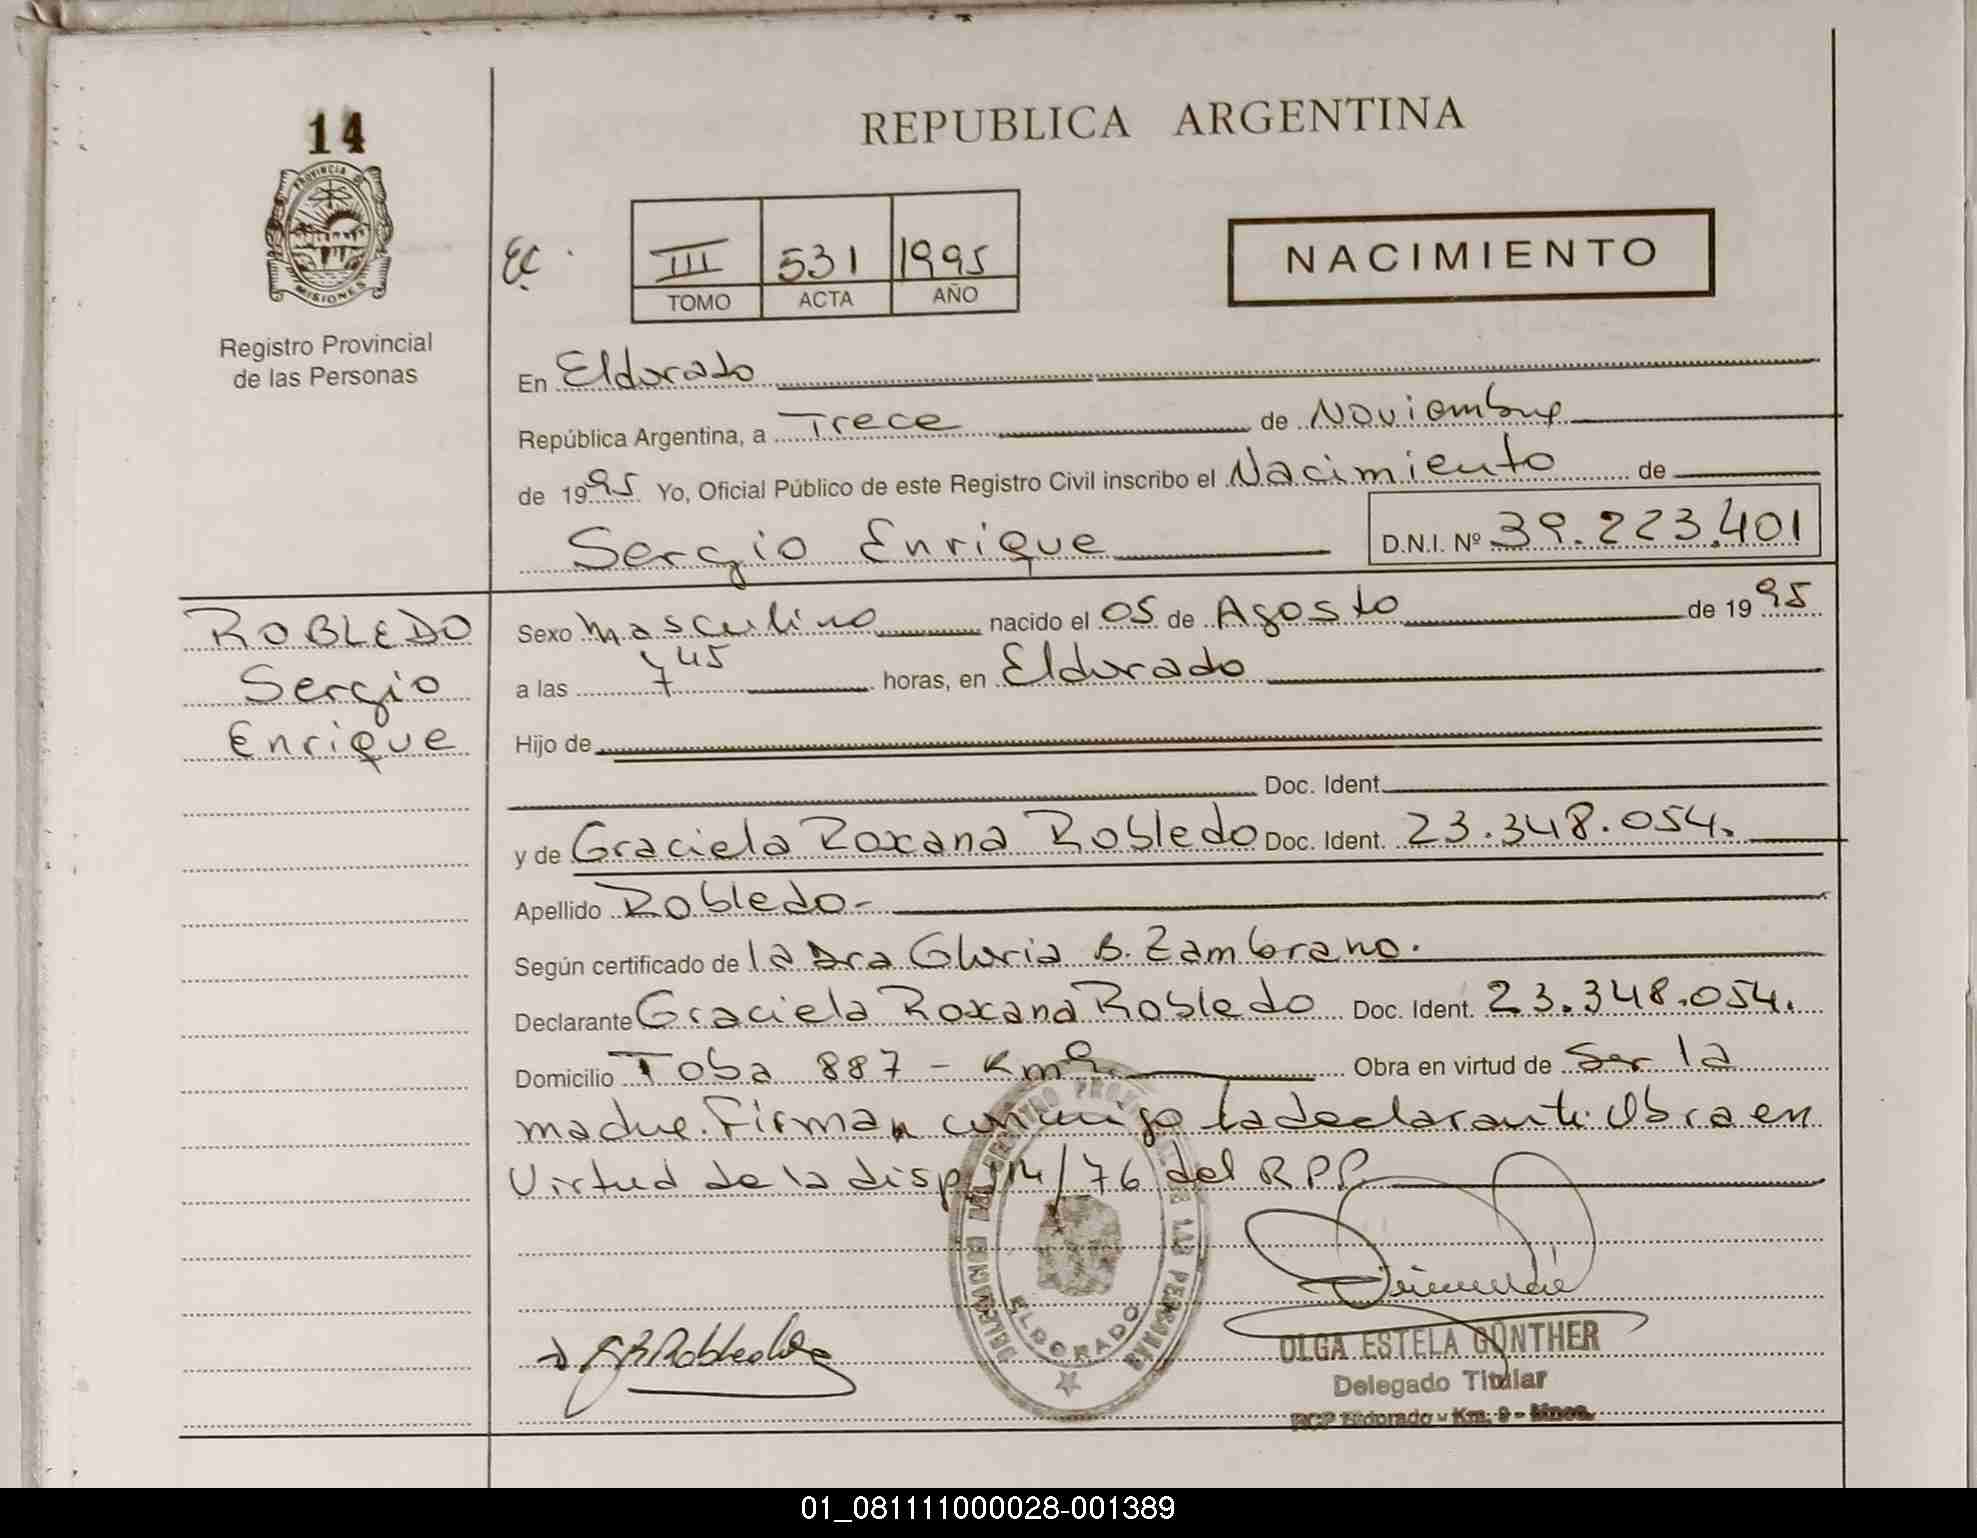 14
PROVINCIA DE
MISIONES
Registro Provincial
de las Personas
REPUBLICA ARGENTINA
III 531 1995
TOMO ACTA AÑO
NACIMIENTO
En Eldorado
República Argentina, a Trece de Noviembre
de 1995 Yo, Oficial Público de este Registro Civil inscribo el Nacimiento de
Sergio Enrique D.N.I. Nº 39.223.401
ROBLEDO
Sergio
Enrique
Sexo Masculino nacido el 05 de Agosto de 1995
a las 7 45 horas, en Eldorado
Hijo de
Doc. Ident.
y de Graciela Roxana Robledo Doc. Ident. 23.348.054.
Apellido Robledo-
Según certificado de la Dra Gloria B. Zambrano.
Declarante Graciela Roxana Robledo Doc. Ident. 23.348.054.
Domicilio Toba 887 - Km 9 Obra en virtud de Ser la
madre. Firman conmigo la declarante. Obra en
Virtud de la disp 14/76 del RPP.
ELDORADO
G R Robledo
OLGA ESTELA GÜNTHER
Delegado Titular
RCP Eldorado - Km. 9 - Mnes.
01_081111000028-001389